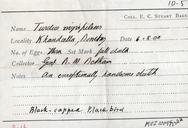 10-5
COLL. E. C. STUART BAKER
Name Turdus nigripileus
Locality Khandalla, Bombay Date 6-8-00
No. of Eggs Three Set Mark full clutch
Collector R. M. Betham
Notes An exceptionally handsome clutch
Black-capped Blackbird